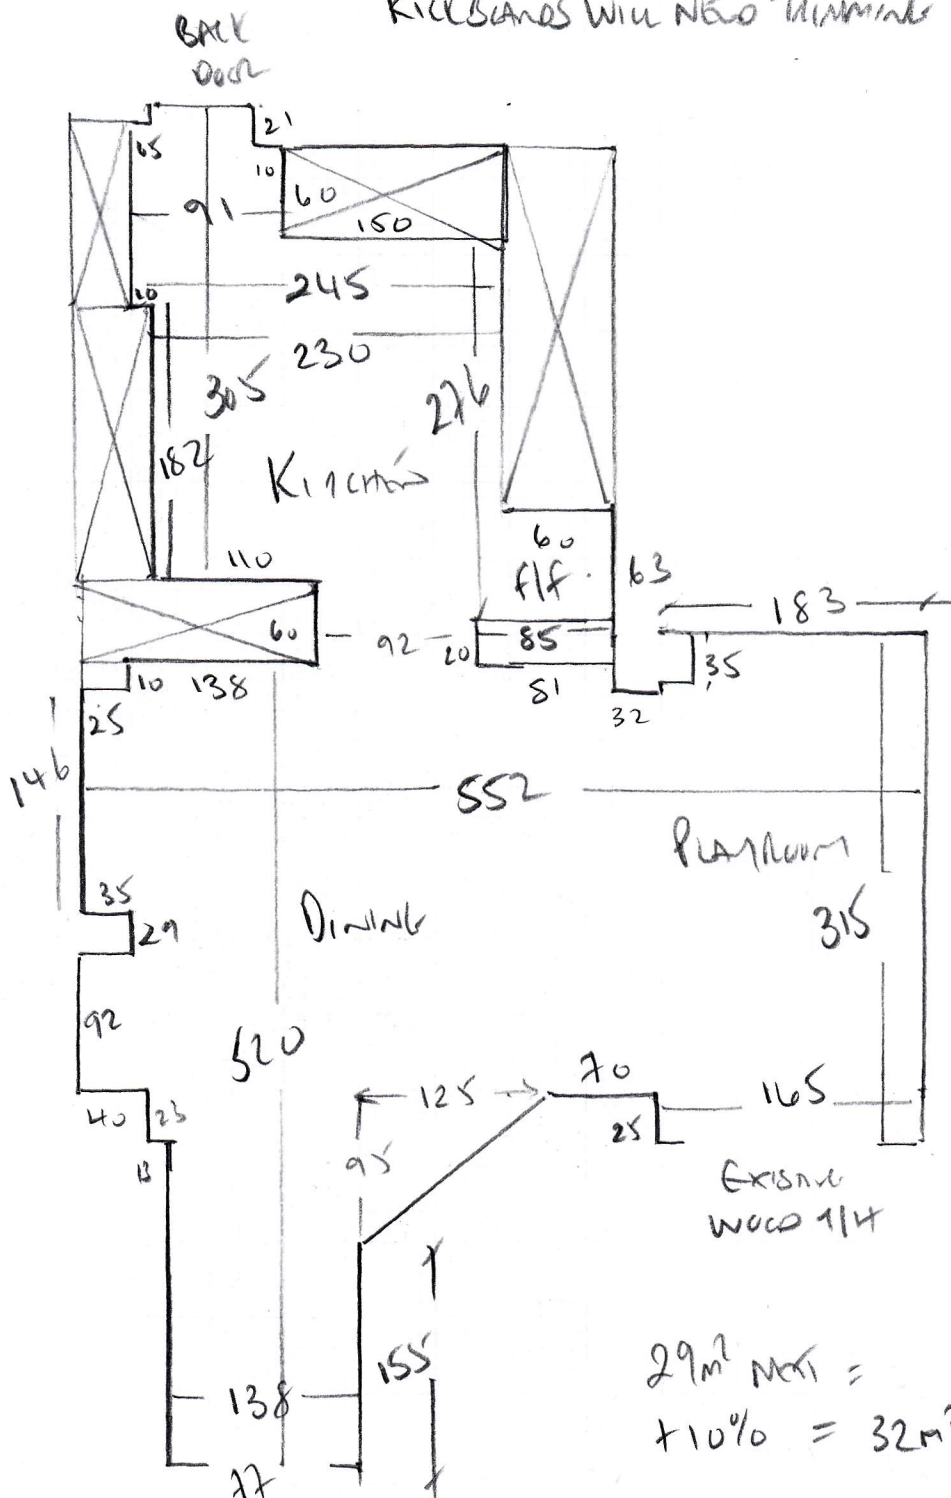 KICKBOARDS WILL NEED TRIMMING
BACK
DOOR
21
65
10
60
91
150
20
245
230
305
276
182
KITCHEN
110
60
f/f.
63
183
60
92
20
85
35
10
138
81
25
32
146
552
PLAYROOM
35
29
DINING
315
92
520
70
125
165
40
23
25
13
95
EXISTING
WOOD T/H
155
29m² NETT =
138
+10% = 32m²
77